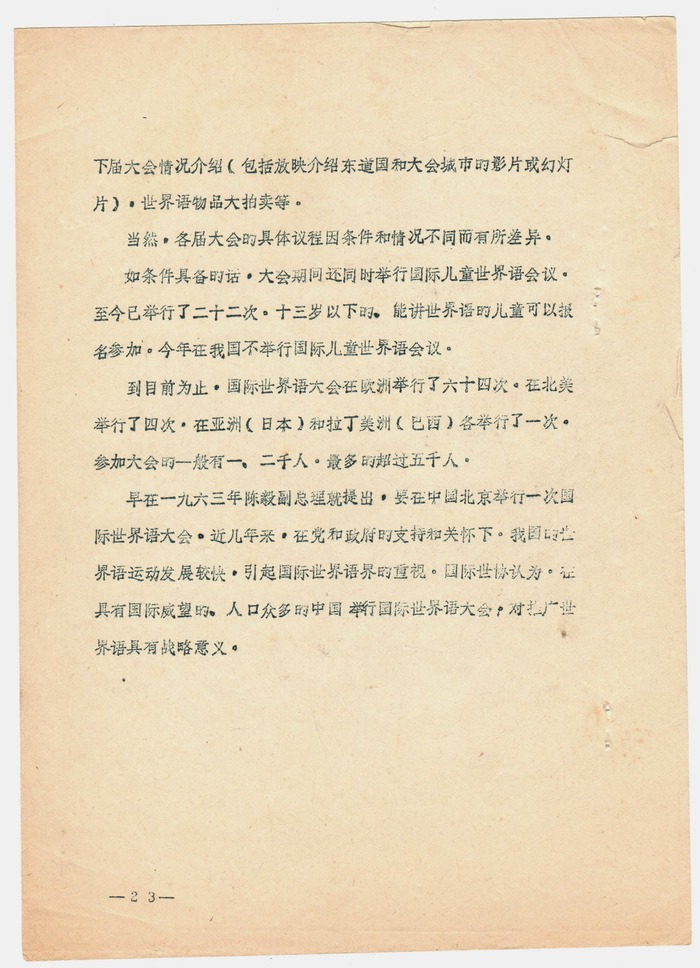 下届大会情况介绍(包括放映介绍东道国和大会城市的影片或幻灯
片)，世界语物品大拍卖等。
当然，各届大会的具体议程因条件和情况不同而有所差异。
如条件具备的话，大会期间还同时举行国际儿童世界语会议。
至今已举行了二十二次。十三岁以下的、能讲世界语的儿童可以报
名参加。今年在我国不举行国际儿童世界语会议。
到目前为止，国际世界语大会在欧洲举行了六十四次。在北美
举行了四次，在亚洲(日本)和拉丁美洲(巴西)各举行了一次。
参加大会的一般有一、二千人。最多的超过五千人。
早在一九六三年陈毅副总理就提出，要在中国北京举行一次国
际世界语大会。近几年来，在党和政府的支持和关怀下。我国的世
界语运动发展较快，引起国际世界语界的重视。国际世协认为。在
具有国际威望的、人口众多的中国举行国际世界语大会，对推广世
界语具有战略意义。
—23—